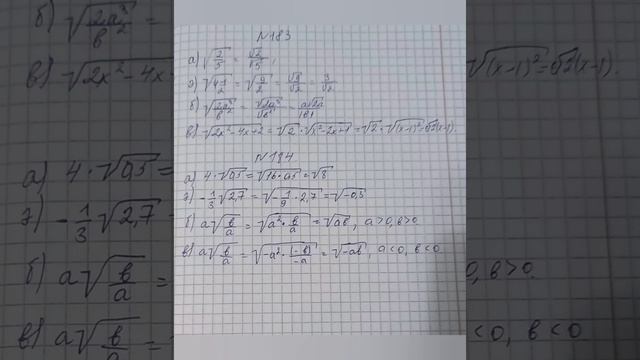 N183
а) √(2/5) = √2/√5,
г) √(4 1/2) = √(9/2) = √9/√2 = 3/√2
б) √(2a³/b²) = √(2a³)/√(b²) = a√(2a)/|b|
в) √(2x²-4x+2) = √2 · √(x²-2x+1) = √2 · √((x-1)²) = √2(x-1).
N184
а) 4·√0,5 = √(16·0,5) = √8
г) -1/3√2,7 = √(-1/9 · 2,7) = √-0,3
б) a√(b/a) = √(a² · b/a) = √(ab), a>0, b>0
в) a√(b/a) = √(-a² · |-b|/-a) = √(-ab), a<0, b<0